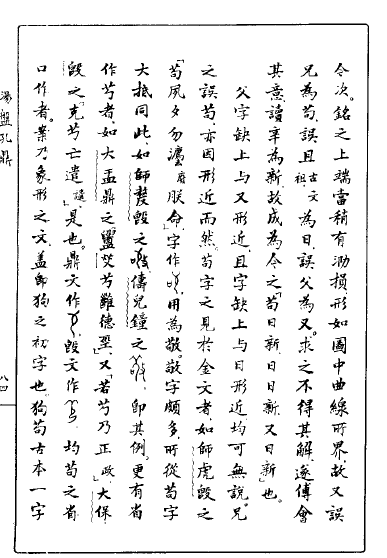 令次。銘之上端當稍有泐損形如圖中曲線所界故又誤
兄為茍誤且古文祖為日誤父為又。求之不得其解遂傅會
其意讀辛為新故成為今之「茍日新日日新又日新」也。
父字缺上与又形近且字缺上与日形近均可無說。兄
之誤茍亦因形近而然。茍字之見於金文者如師虎𣪘之
「茍夙夕勿灋廢朕命」字作用為敬。敬字頗多所從茍字
大抵同此如師𠭰𣪘之儔兒鐘之即其例。更有省
作芍者如大盂鼎之「䍙芍雝德坙」又「若芍乃正政」大保
𣪘之「克芍亡遣譴」是也。鼎文作𣪘文作均茍之省
口作者。案乃象形之文蓋即狗之初字也。狗茍古本一字
湯盤孔鼎
八四